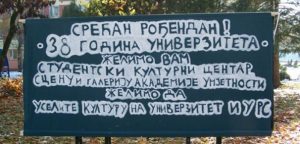 СРЕЋАН РОЂЕНДАН!
38 ГОДИНА УНИВЕРЗИТЕТА
ЖЕЛИМО ВАМ
СТУДЕНТСКИ КУЛТУРНИ ЦЕНТАР,
СЦЕНУ И ГАЛЕРИЈУ АКАДЕМИЈЕ УМЈЕТНОСТИ
ЖЕЛИМО ДА
УСЕЛИТЕ КУЛТУРУ НА УНИВЕРЗИТЕТ И У РС